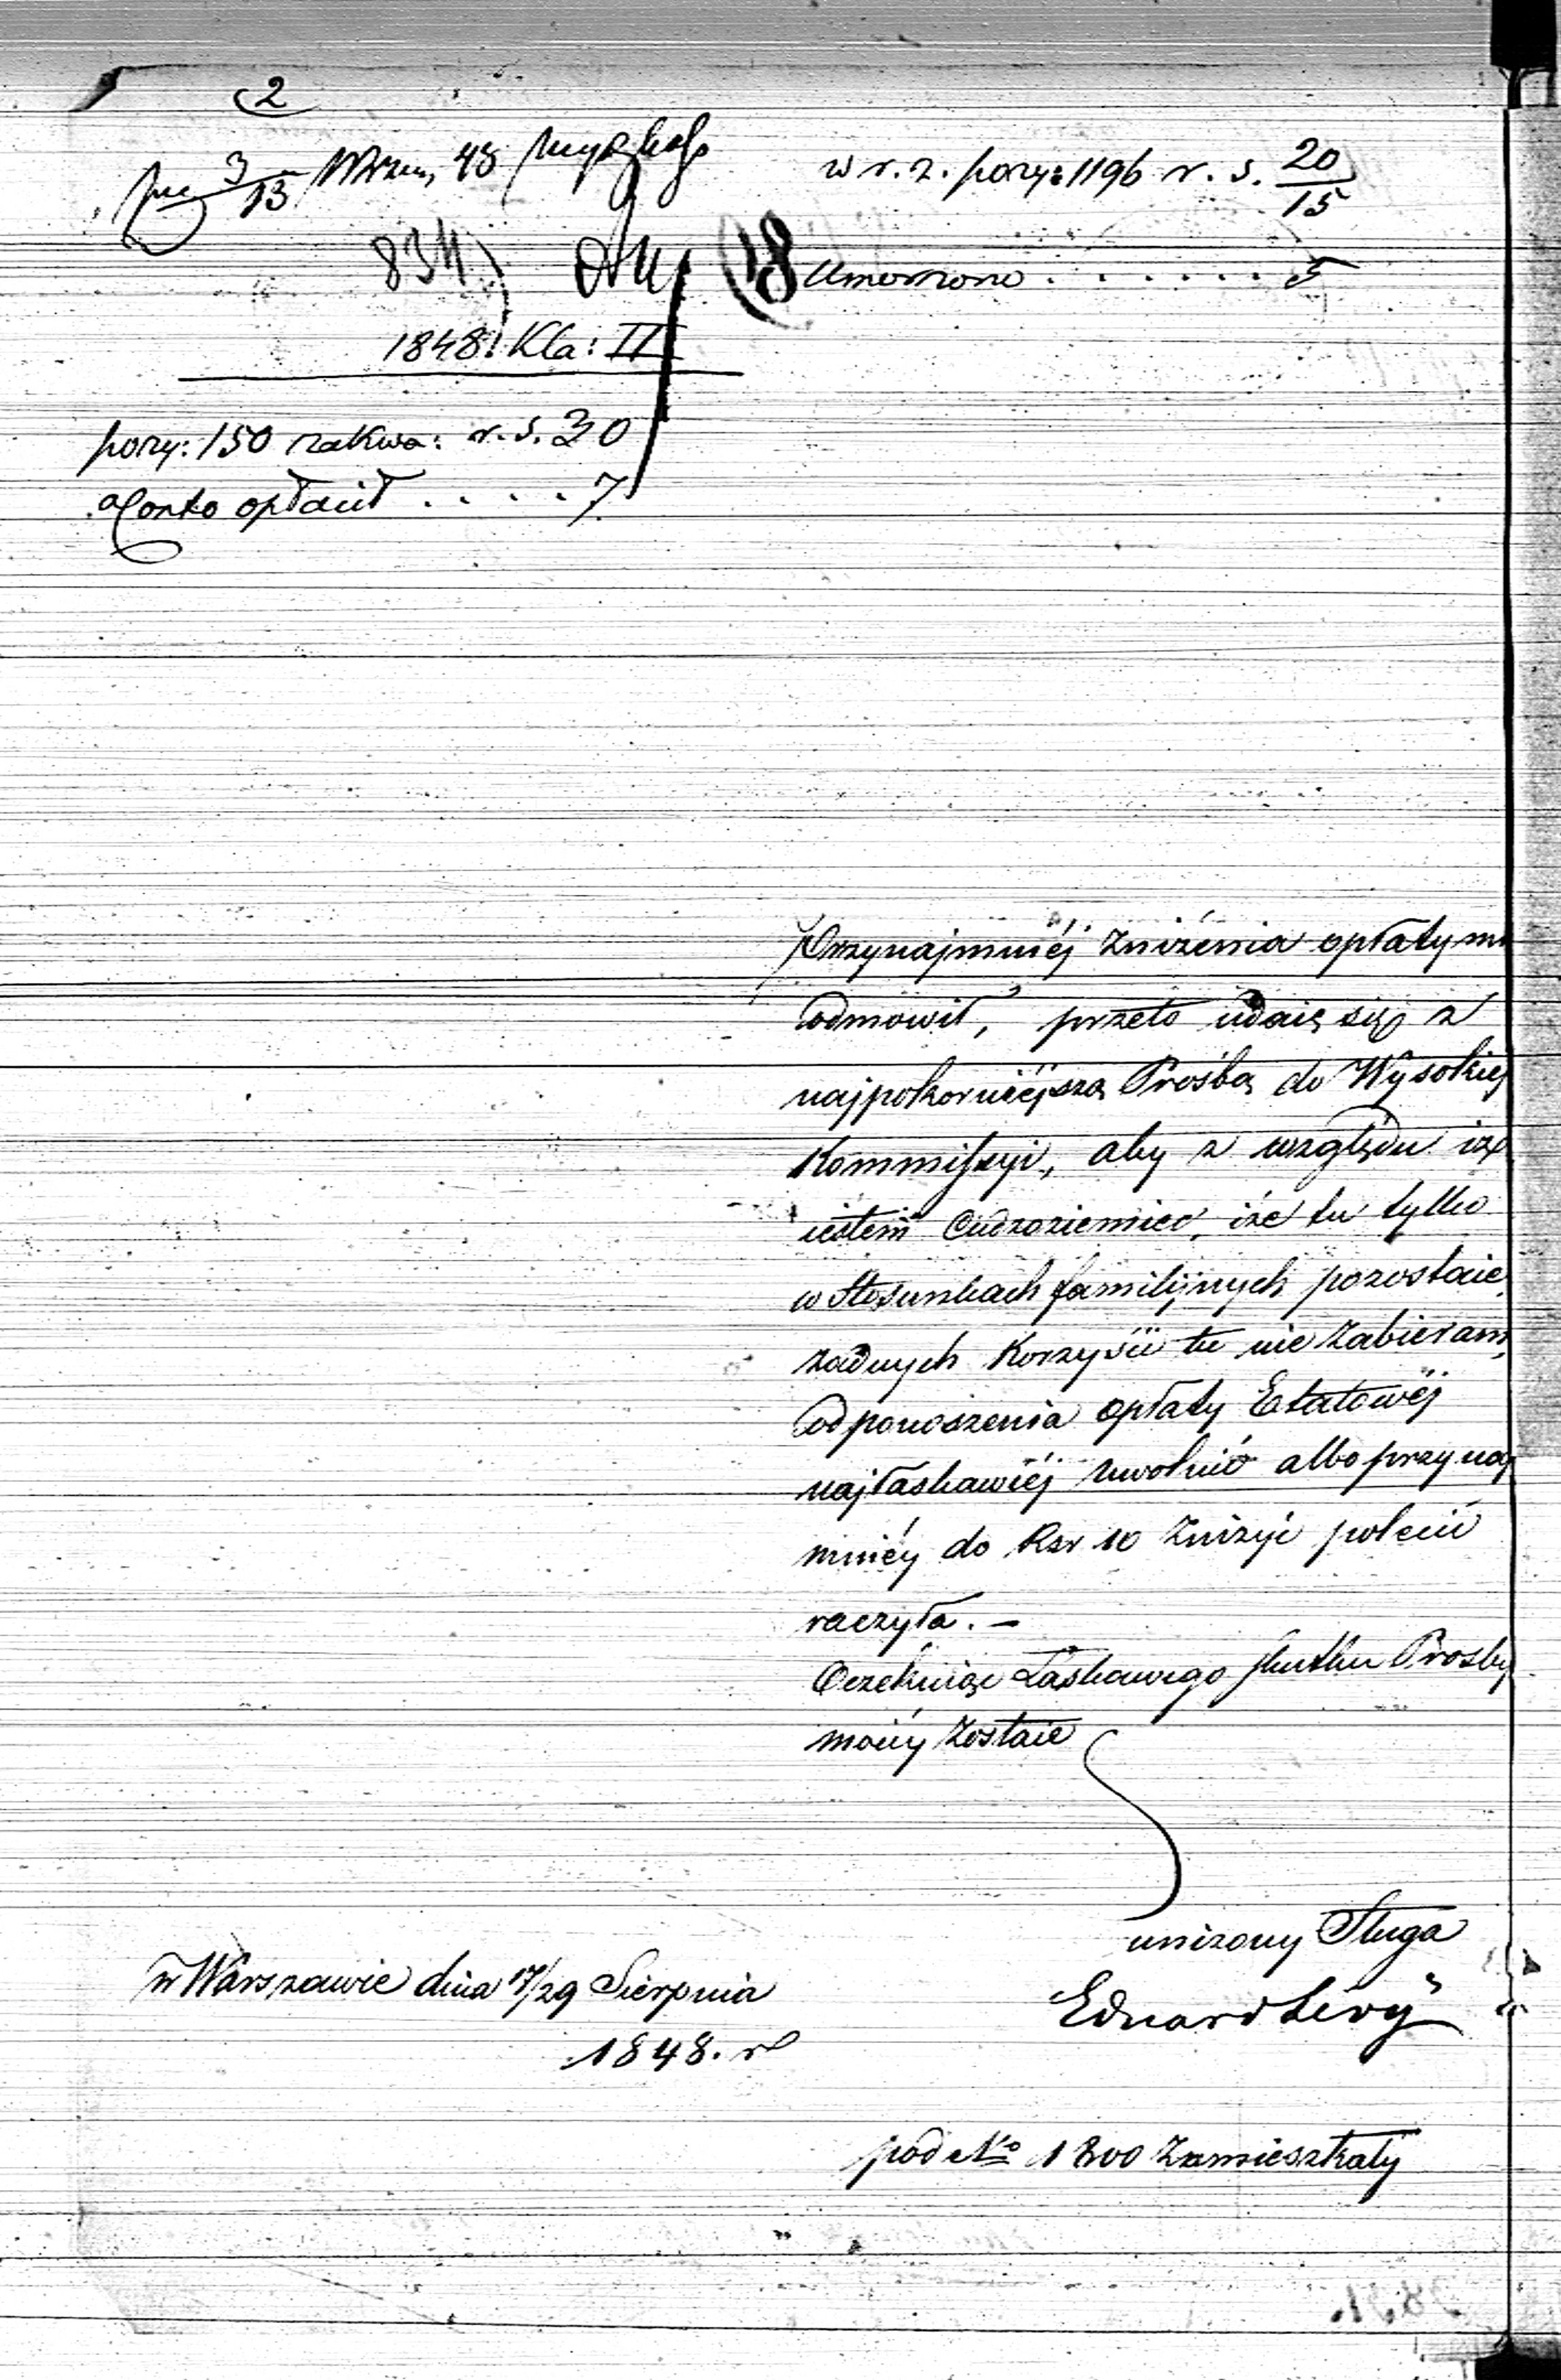 2
3/13 Wrzes, 48
w r. z. pozy: 1196 r. s. 20/15
834
18
Umorzono . . . . . . 5
1848. Kla: II
pozy: 150 zakwa: r. s. 30
a Conto opłacił . . . . 7.
Przynajmniéj Zniżénia opłaty mi
odmowił, przeto udaię się z
najpokorniéjszą Prośbą do Wysokiéj
Kommissyi, aby z względu iż
iestem Cudzoziemiec, iże tu tylko
w Stosunkach familijnych pozostaię
żadnych Korzyści tu nie Zabieram,
od ponoszenia opłaty Etatowéj
najłaskawiéj uwolnić albo przynaj
mniéy do Rsr 10 Zniżyć polecić
raczyła. –
Oczekuiąc Łaskawego skutku Prośby
moiéy Zostaie
uniżony Sługa
w Warszawie dnia 17/29 Sierpnia
Eduard Levÿ
1848. r
pod No 1800 Zamieszkały